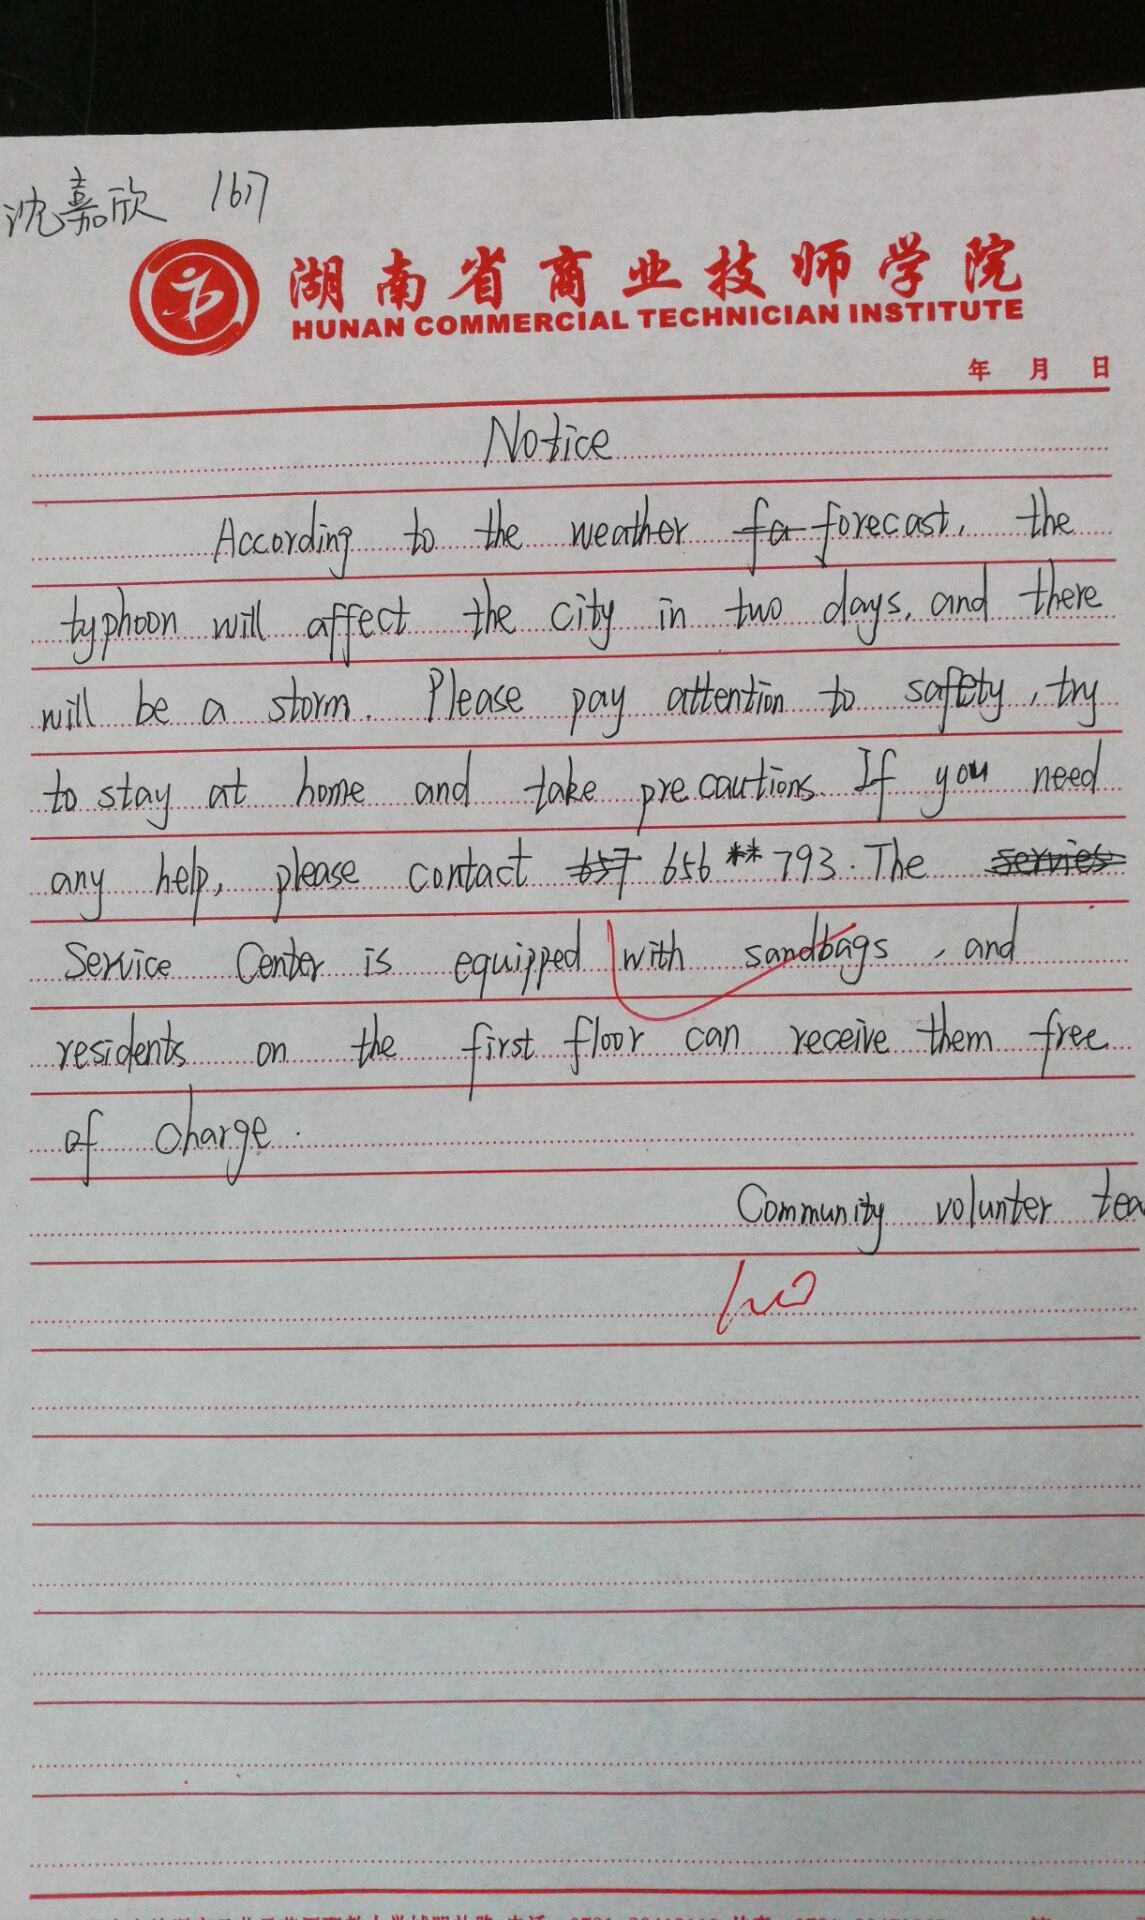 沈嘉欣 1617
湖南省商业技师学院
HUNAN COMMERCIAL TECHNICIAN INSTITUTE
年 月 日
Notice
According to the weather forecast, the
typhoon will affect the city in two days, and there
will be a storm. Please pay attention to safety, try
to stay at home and take precautions. If you need
any help, please contact 656**793. The
Service Center is equipped with sandbags, and
residents on the first floor can receive them free
of charge.
Community volunter tea